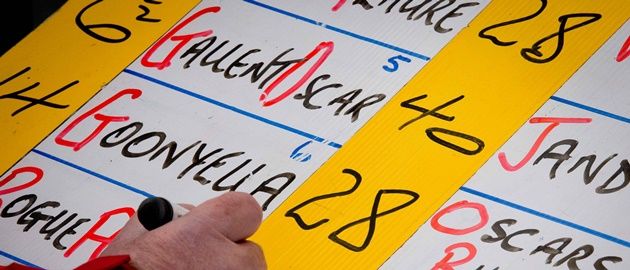 28
6½ GALLENT OSCAR 5 40
14 GOONYELLA 6 28 OSCARS
ROGUE